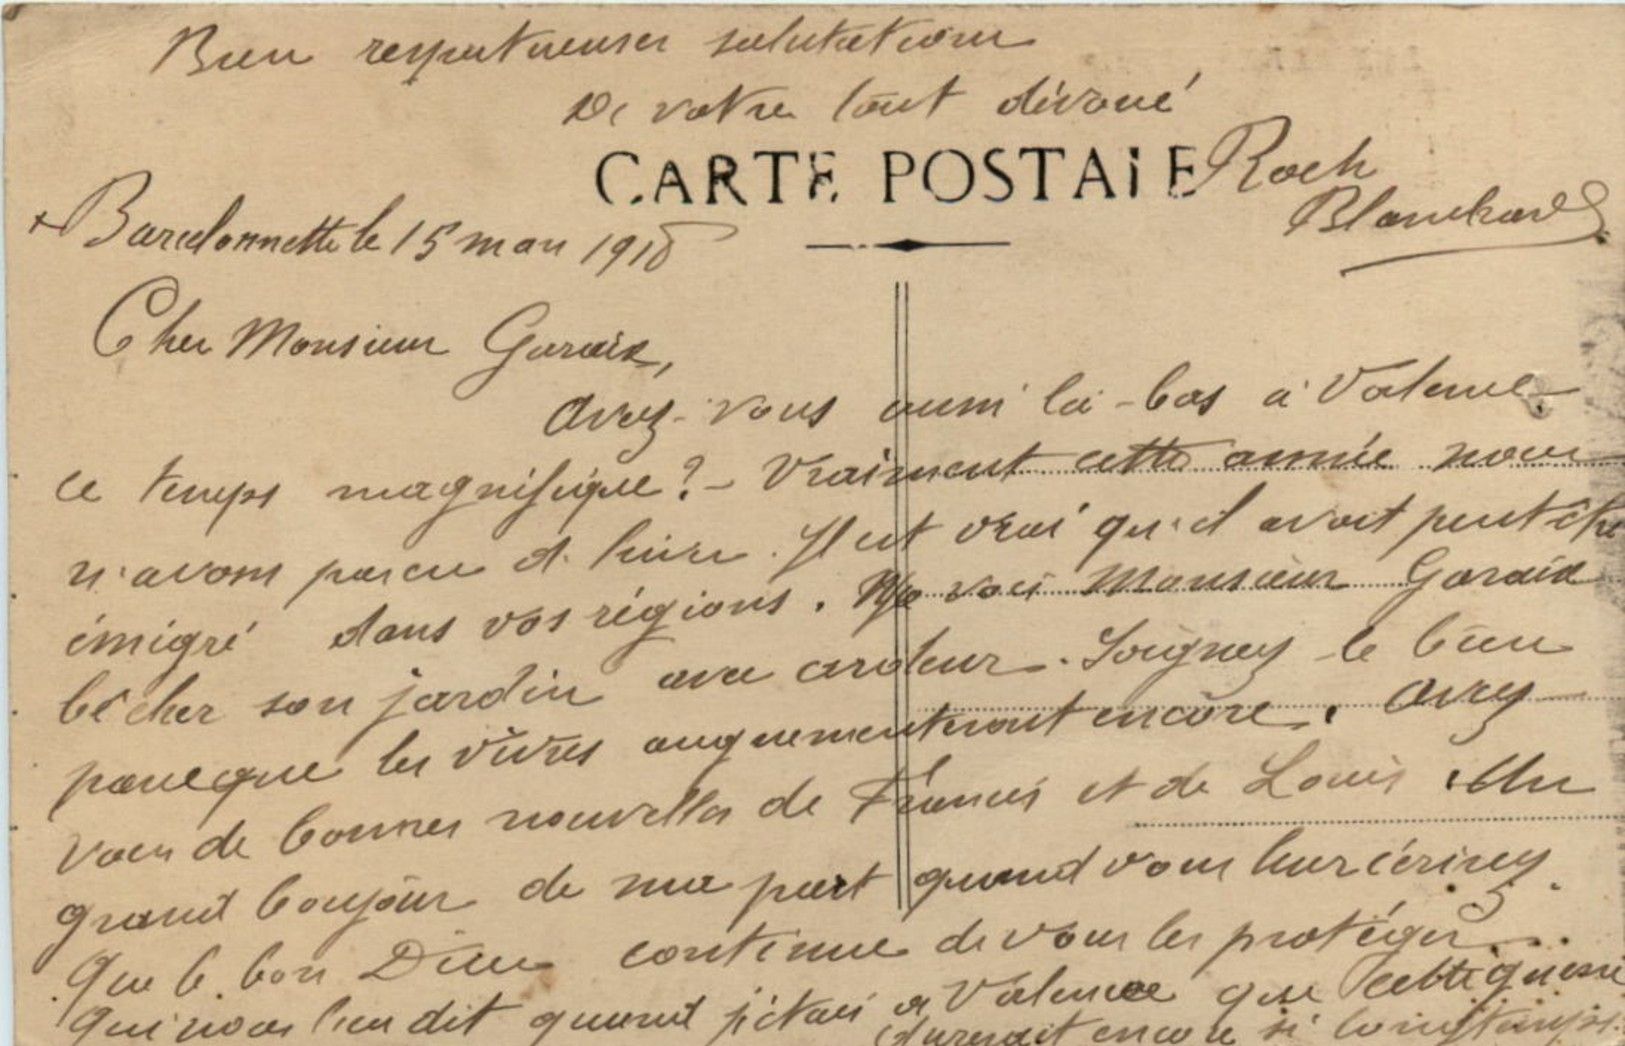 Bien respectueuses salutations
De votre tout dévoué
CARTE POSTALE
Roch
Blanchard
Barcelonnette le 15 mars 1918
Cher Monsieur Garaix,
Avez-vous aussi là-bas à Valence
ce temps magnifique ? - Vraiment cette année nous
n'avons pas eu d'hiver. Il est vrai qu'il avait peut être
émigré dans vos régions. Je vois Monsieur Garaix
bêcher son jardin avec ardeur. Soignez le bien
parceque les vivres augmenteront encore. Avez
vous de bonnes nouvelles de Francis et de Louis. Un
grand bonjour de ma part quand vous leur écrirez.
Que le bon Dieu continue de vous les protéger.
Qui nous l'eu dit quand j'étais à Valence que cette guerre
durerait encore si longtemps.